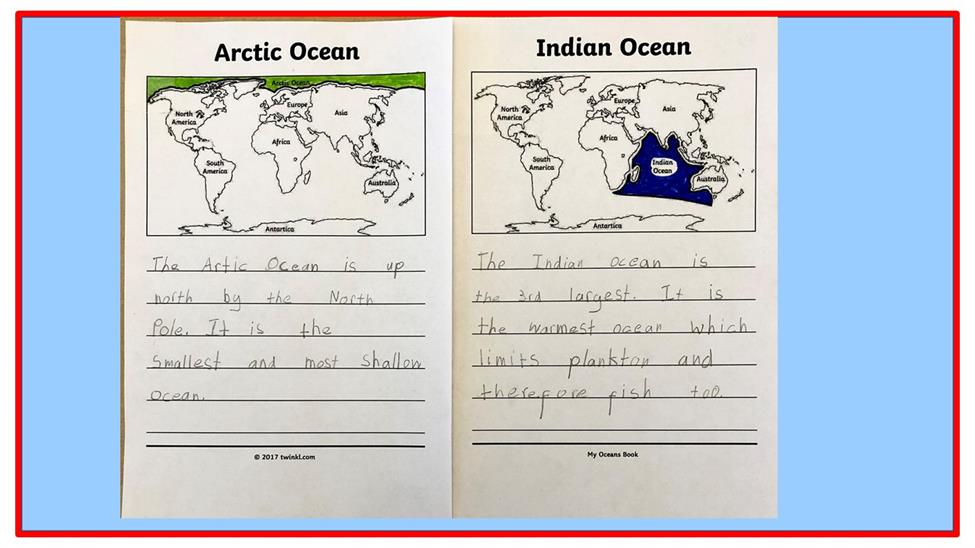 Arctic Ocean
Arctic Ocean
North
America
Europe
Asia
Africa
South
America
Australia
Antartica
The Artic Ocean is up
north by the North
Pole. It is the
smallest and most shallow
ocean.
© 2017 twinkl.com
Indian Ocean
North
America
Europe
Asia
Africa
South
America
Indian
Ocean
Australia
Antartica
The Indian ocean is
the 3rd largest. It is
the warmest ocean which
limits plankton and
therefore fish too.
My Oceans Book